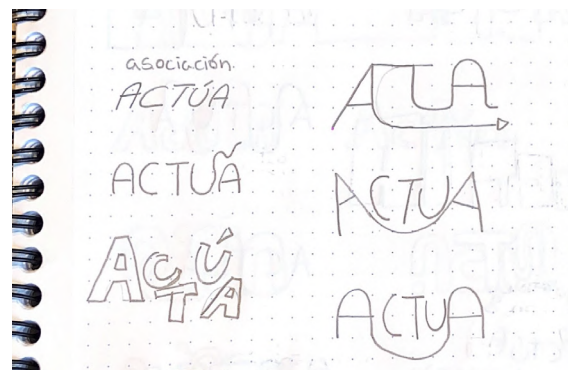 asociación
ACTÚA
ACTUÃ
ACTÚA
ACTUA
ACTUA
ACTUA